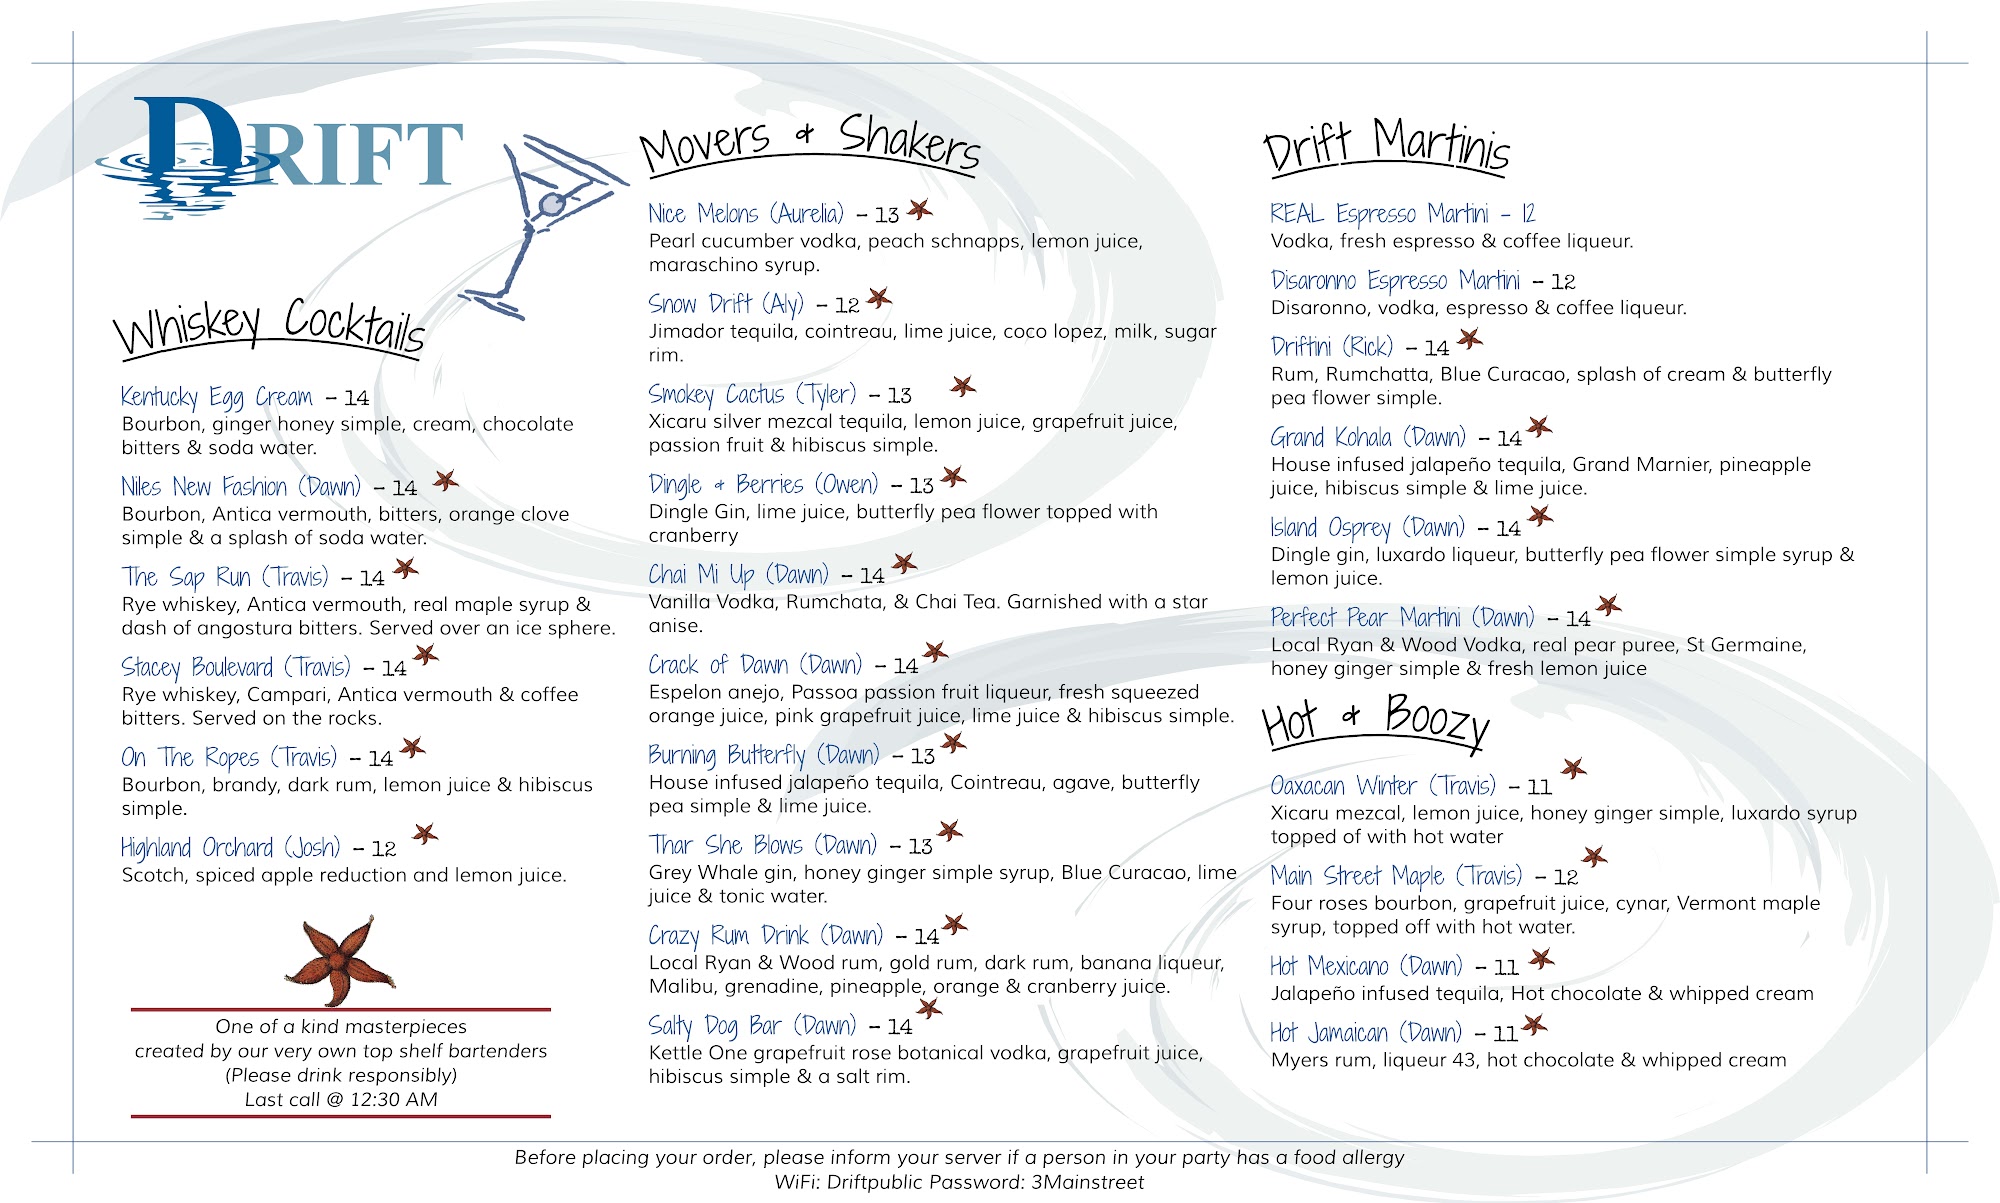 DRIFT
Whiskey Cocktails
Kentucky Egg Cream – 14
Bourbon, ginger honey simple, cream, chocolate
bitters & soda water.
Niles New Fashion (Dawn) – 14
Bourbon, Antica vermouth, bitters, orange clove
simple & a splash of soda water.
The Sap Run (Travis) – 14
Rye whiskey, Antica vermouth, real maple syrup &
dash of angostura bitters. Served over an ice sphere.
Stacey Boulevard (Travis) – 14
Rye whiskey, Campari, Antica vermouth & coffee
bitters. Served on the rocks.
On The Ropes (Travis) – 14
Bourbon, brandy, dark rum, lemon juice & hibiscus
simple.
Highland Orchard (Josh) – 12
Scotch, spiced apple reduction and lemon juice.
One of a kind masterpieces
created by our very own top shelf bartenders
(Please drink responsibly)
Last call @ 12:30 AM
Movers & Shakers
Nice Melons (Aurelia) – 13
Pearl cucumber vodka, peach schnapps, lemon juice,
maraschino syrup.
Snow Drift (Aly) – 12
Jimador tequila, cointreau, lime juice, coco lopez, milk, sugar
rim.
Smokey Cactus (Tyler) – 13
Xicaru silver mezcal tequila, lemon juice, grapefruit juice,
passion fruit & hibiscus simple.
Dingle & Berries (Owen) – 13
Dingle Gin, lime juice, butterfly pea flower topped with
cranberry
Chai Mi Up (Dawn) – 14
Vanilla Vodka, Rumchata, & Chai Tea. Garnished with a star
anise.
Crack of Dawn (Dawn) – 14
Espelon anejo, Passoa passion fruit liqueur, fresh squeezed
orange juice, pink grapefruit juice, lime juice & hibiscus simple.
Burning Butterfly (Dawn) – 13
House infused jalapeño tequila, Cointreau, agave, butterfly
pea simple & lime juice.
Thar She Blows (Dawn) – 13
Grey Whale gin, honey ginger simple syrup, Blue Curacao, lime
juice & tonic water.
Crazy Rum Drink (Dawn) – 14
Local Ryan & Wood rum, gold rum, dark rum, banana liqueur,
Malibu, grenadine, pineapple, orange & cranberry juice.
Salty Dog Bar (Dawn) – 14
Kettle One grapefruit rose botanical vodka, grapefruit juice,
hibiscus simple & a salt rim.
Drift Martinis
REAL Espresso Martini – 12
Vodka, fresh espresso & coffee liqueur.
Disaronno Espresso Martini – 12
Disaronno, vodka, espresso & coffee liqueur.
Driftini (Rick) – 14
Rum, Rumchatta, Blue Curacao, splash of cream & butterfly
pea flower simple.
Grand Kohala (Dawn) – 14
House infused jalapeño tequila, Grand Marnier, pineapple
juice, hibiscus simple & lime juice.
Island Osprey (Dawn) – 14
Dingle gin, luxardo liqueur, butterfly pea flower simple syrup &
lemon juice.
Perfect Pear Martini (Dawn) – 14
Local Ryan & Wood Vodka, real pear puree, St Germaine,
honey ginger simple & fresh lemon juice
Hot & Boozy
Oaxacan Winter (Travis) – 11
Xicaru mezcal, lemon juice, honey ginger simple, luxardo syrup
topped of with hot water
Main Street Maple (Travis) – 12
Four roses bourbon, grapefruit juice, cynar, Vermont maple
syrup, topped off with hot water.
Hot Mexicano (Dawn) – 11
Jalapeño infused tequila, Hot chocolate & whipped cream
Hot Jamaican (Dawn) – 11
Myers rum, liqueur 43, hot chocolate & whipped cream
Before placing your order, please inform your server if a person in your party has a food allergy
WiFi: Driftpublic Password: 3Mainstreet